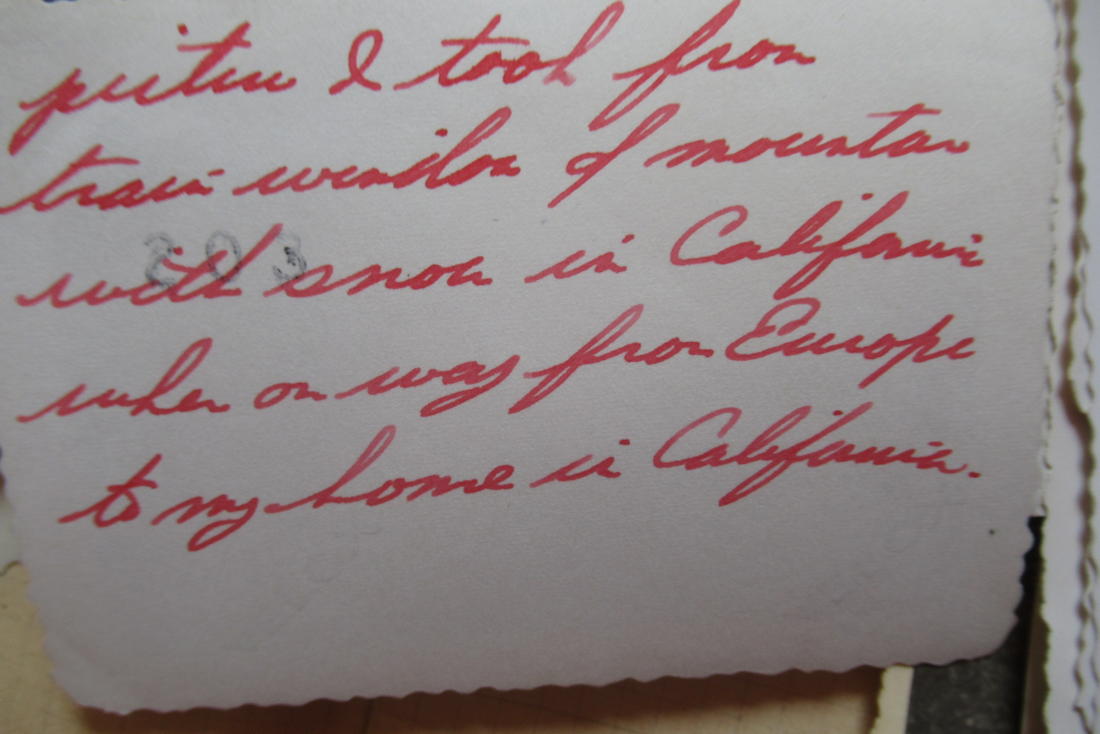 picture I took from
train window of mountain
203
with snow in California
when on way from Europe
to my home in California.